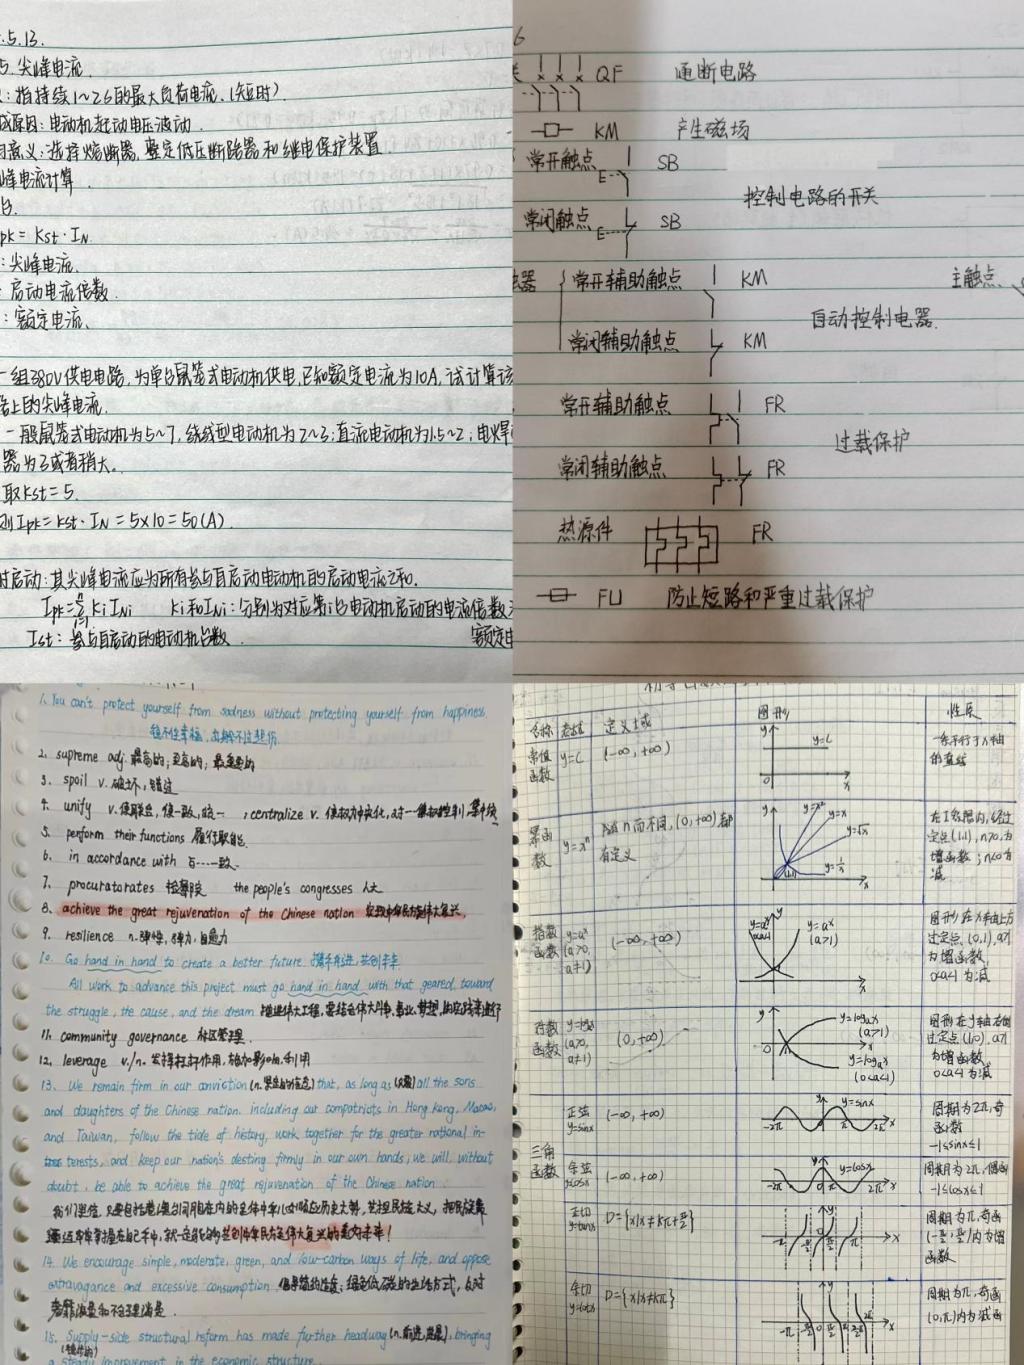 .5.13.
5.尖峰电流.
:指持续1~2s的最大负荷电流.(短时).
成原因:电动机起动电压波动.
意义:选择熔断器,整定低压断路器和继电保护装置
峰电流计算.
台.
pk=Kst·IN
:尖峰电流.
:启动电流倍数.
:额定电流、
一组380V供电电路,为单台鼠笼式电动机供电,已知额定电流为10A,试计算该
路上的尖峰电流.
一般鼠笼式电动机为5~7,绕线型电动机为2~3;直流电动机为1.5~2;电焊
器为3或者稍大。
取Kst=5.
则Ipk=Kst·IN=5×10=50(A).
时启动:其尖峰电流应为所有参与自启动电动机的启动电流之和.
Ipk=Σ Ki INi Ki和INi:分别为对应第i台电动机启动的电流倍数
Ist:参与自启动的电动机台数. 额定电
6
关 QF 通断电路
KM 产生磁场
常开触点 E SB
控制电路的开关
常闭触点 E SB
器 常开辅助触点 KM 主触点
自动控制电器.
常闭辅助触点 KM
常开辅助触点 FR
过载保护
常闭辅助触点 FR
热源件 FR
FU 防止短路和严重过载保护
1. You can't protect yourself from sadness without protecting yourself from happiness.
2. supreme adj. 最高的;至高的;最重要的
3. spoil v. 破坏,错过
4. unify v. 使联合,使一致,统一 ; centralize v. 使权力中央化,对…集权控制,集中统
5. perform their functions 履行职能
6. in accordance with 与……一致
7. procuratorates 检察院 the people's congresses 人大
8. achieve the great rejuvenation of the Chinese nation 实现中华民族伟大复兴,
9. resilience n.弹性,弹力,自愈力
10. Go hand in hand to create a better future. 携手再进,共创未来
All work to advance this project must go hand in hand with that geared toward
the struggle, the cause, and the dream 推进伟大工程,要结合伟大斗争、事业、梦想,的实践来进行
11. community governance 社区管理.
12. leverage v./n. 发挥杠杆作用,施加影响,利用
13. We remain firm in our conviction (n.坚定的信念) that, as long as (只要) all the sons
and daughters of the Chinese nation, including our compatriots in Hong Kong, Macao,
and Taiwan, follow the tide of history, work together for the greater national in-
terests, and keep our nation's destiny firmly in our own hands, we will, without
doubt, be able to achieve the great rejuvenation of the Chinese nation.
我们坚信,只要包括港澳台同胞在内的全体中华儿女顺应历史大势,共担民族大义,把民族
命运牢牢掌握在自己手中,就一定能够共创中华民族伟大复兴的美好未来!
14. We encourage simple, moderate, green, and low-carbon ways of life, and oppose
extravagance and excessive consumption 倡导简约适度,绿色低碳的生活方式,反对
奢靡浪费和不合理消费.
15. Supply-side structural reform has made further headway (n.前进,进展), bringing
a steady improvement in the economic structure.
名称 表达 定义域 图形 性质
常值函数 y=C (-∞,+∞) y y=C 0 x 一条平行于x轴的直线
幂函数 y=xⁿ 随n而不同,(0,+∞)都有定义 y y=x² y=x y=√x y=1/x (1,1) x 在I象限内,经过定点(1,1),n>0,为增函数;n<0为减
指数函数 y=aˣ (a>0, a≠1) (-∞,+∞) y=aˣ 0<a<1 y y=aˣ (a>1) x 图形在x轴上方过定点,(0,1),a>1为增函数,0<a<1为减
对数函数 y=logₐx (a>0, a≠1) (0,+∞) y y=logₐx (a>1) 0 x y=logₐx (0<a<1) 图形在y轴右侧过定点(1,0),a>1为增函数 0<a<1为减
三角函数
正弦 y=sinx (-∞,+∞) y y=sinx -2π 0 π 2π x 周期为2π,奇函数 -1≤sinx≤1
余弦 y=cosx (-∞,+∞) y y=cosx -2π 0 π 2π x 周期为2π,偶函 -1≤cosx≤1
正切 y=tanx D={x|x≠kπ+π/2} -π -π/2 0 π/2 π x 周期为π,奇函 (-π/2,π/2)内为增函数
余切 y=cotx D={x|x≠kπ} -π -π/2 0 π/2 π 3π/2 2π x 周期为π,奇函 (0,π)内为减函